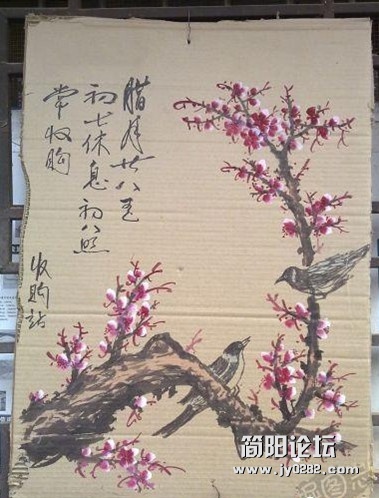 腊月廿八至
初七休息初八照
常收购
收购站
简阳论坛
www.jy0282.com